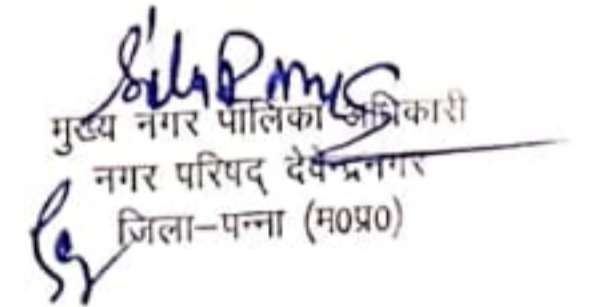 मुख्य नगर पालिका अधिकारी
नगर परिषद् देवेन्द्रनगर
जिला-पन्ना (म०प्र०)